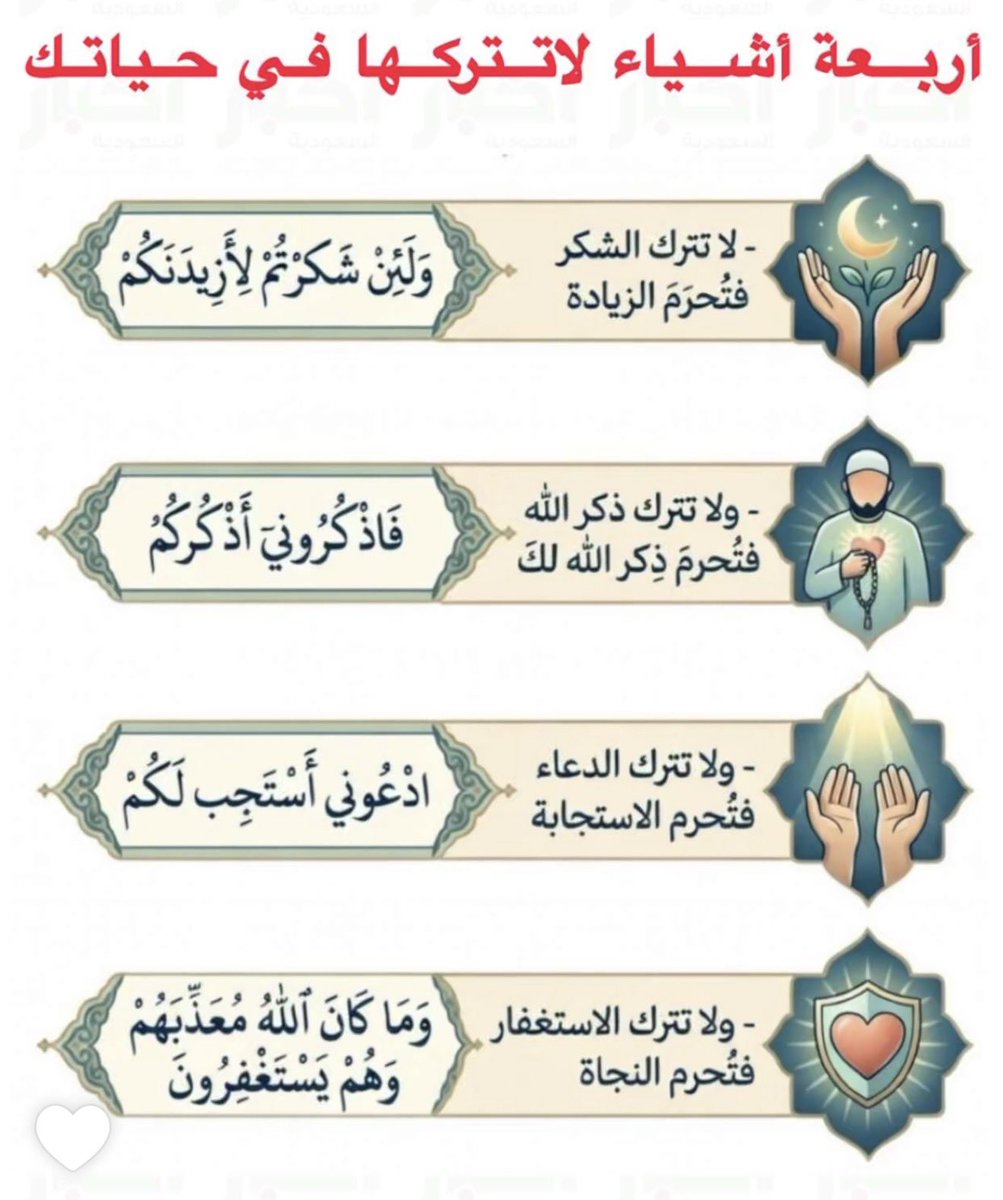 أربعة أشياء لاتتركها في حياتك
- لا تترك الشكر
فتُحرَمَ الزيادة
وَلَئِنْ شَكَرْتُمْ لِأَزِيدَنَكُمْ
- ولا تترك ذكر الله
فتُحرمَ ذِكر الله لكَ
فَاذْكُرُونِيٓ أَذْكُرْكُمُ
- ولا تترك الدعاء
فتُحرم الاستجابة
ادْعُوني أَسْتَجِب لَكُمْ
- ولا تترك الاستغفار
فتُحرم النجاة
وَمَا كَانَ ٱللَّهُ مُعَذِّبَهُمْ
وَهُمْ يَسْتَغْفِرُونَ